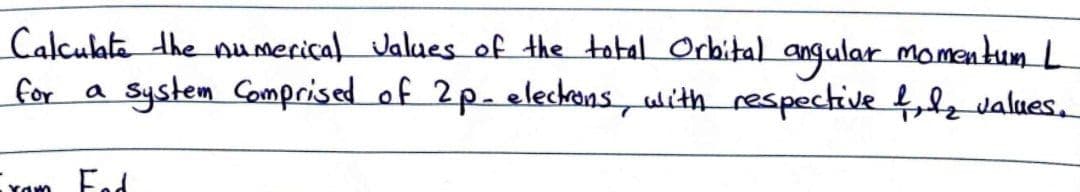 Calculate the numerical values of the total Orbital angular momentum L
for a system Comprised of 2p-electrons, with respective l₁, l₂ values.
Exam End